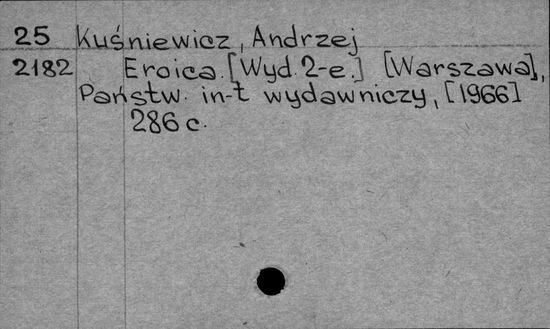 25 Kuśniewicz, Andrzej
2182 Eroica. [Wyd. 2-e.] [Warszawa],
Państw. in-t wydawniczy, [1966]
286 c.